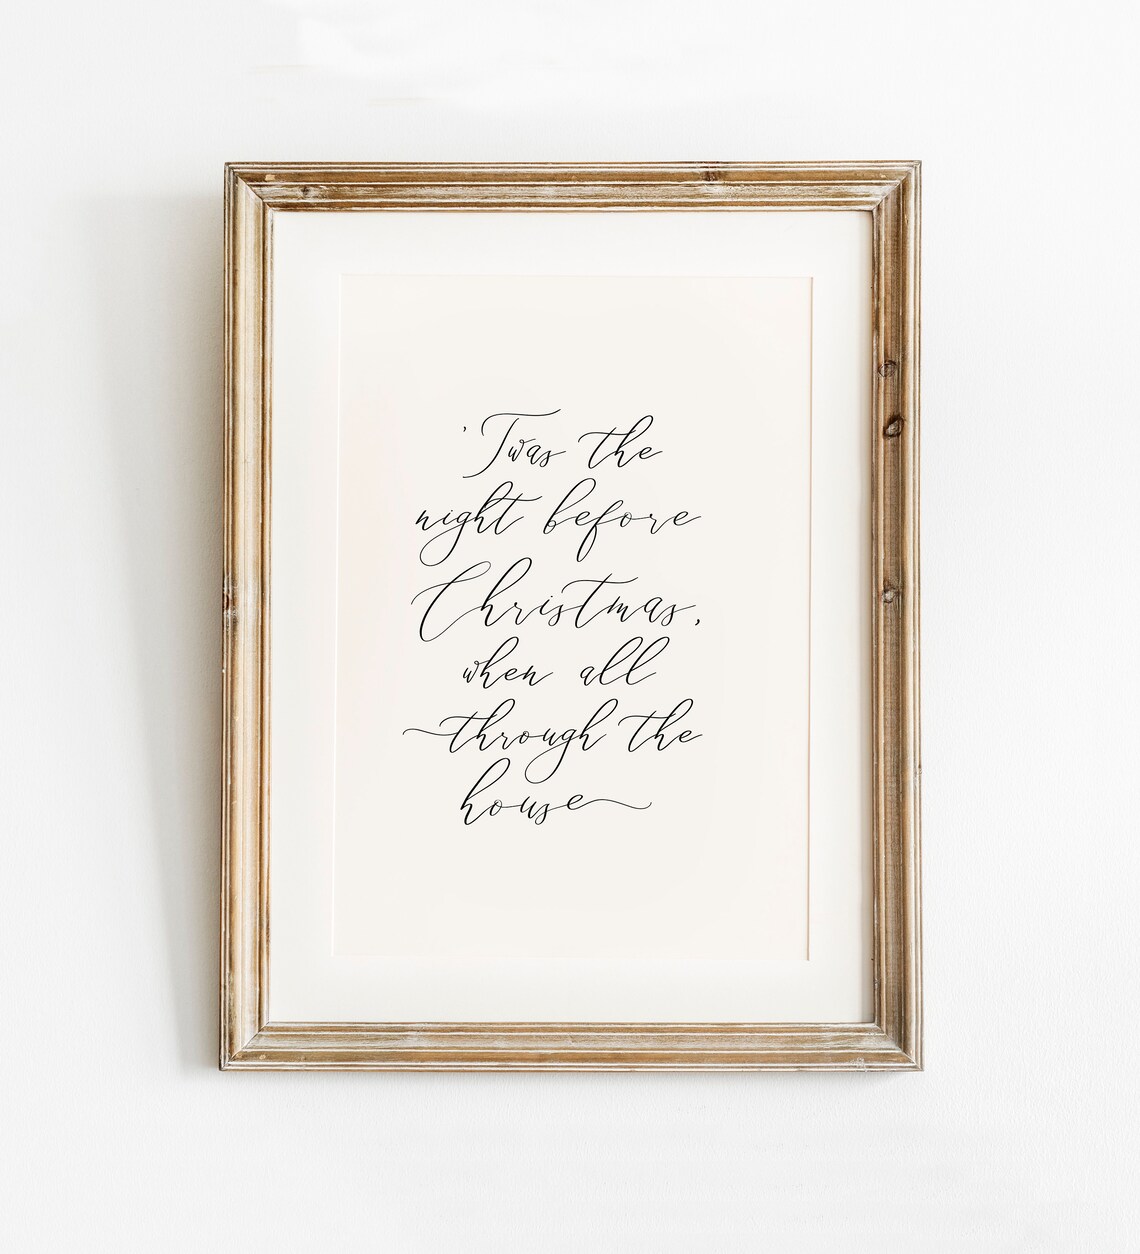 'Twas the
night before
Christmas,
when all
through the
house